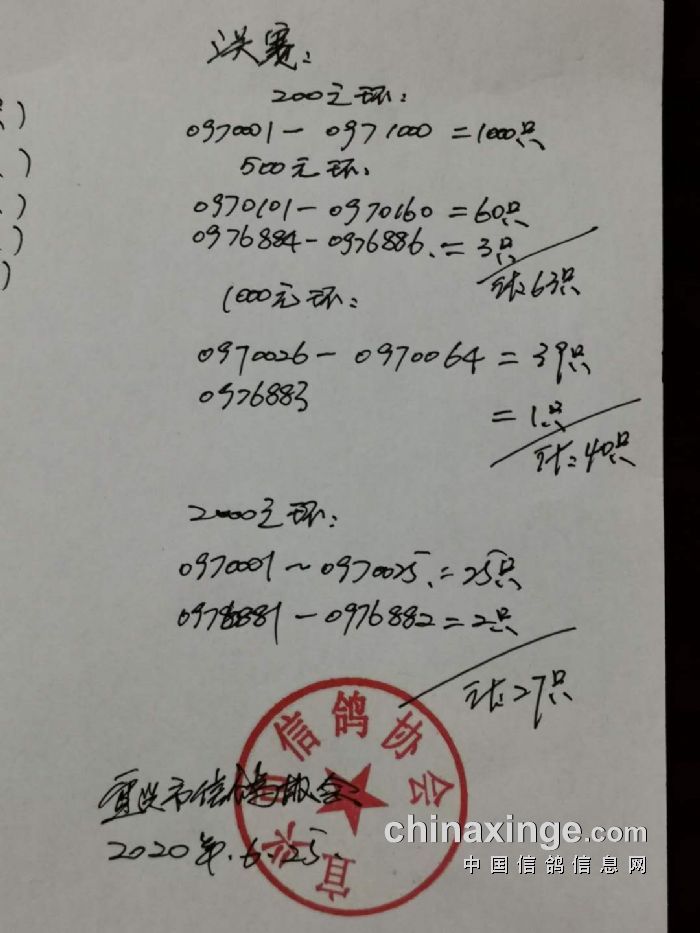 决赛:
200元环:
097001 - 0971000 = 1000只
500元环:
0970101 - 0970160 = 60只
0976884 - 0976886 = 3只
计: 63只
1000元环:
0970026 - 0970064 = 39只
0976883
= 1只
计: 40只
2000元环:
0970001 ~ 0970025 = 25只
0976881 - 0976882 = 2只
计: 27只
宜兴市信鸽协会
宜兴市信鸽协会
2020年.6.25
chinaxinge.com
中国信鸽信息网